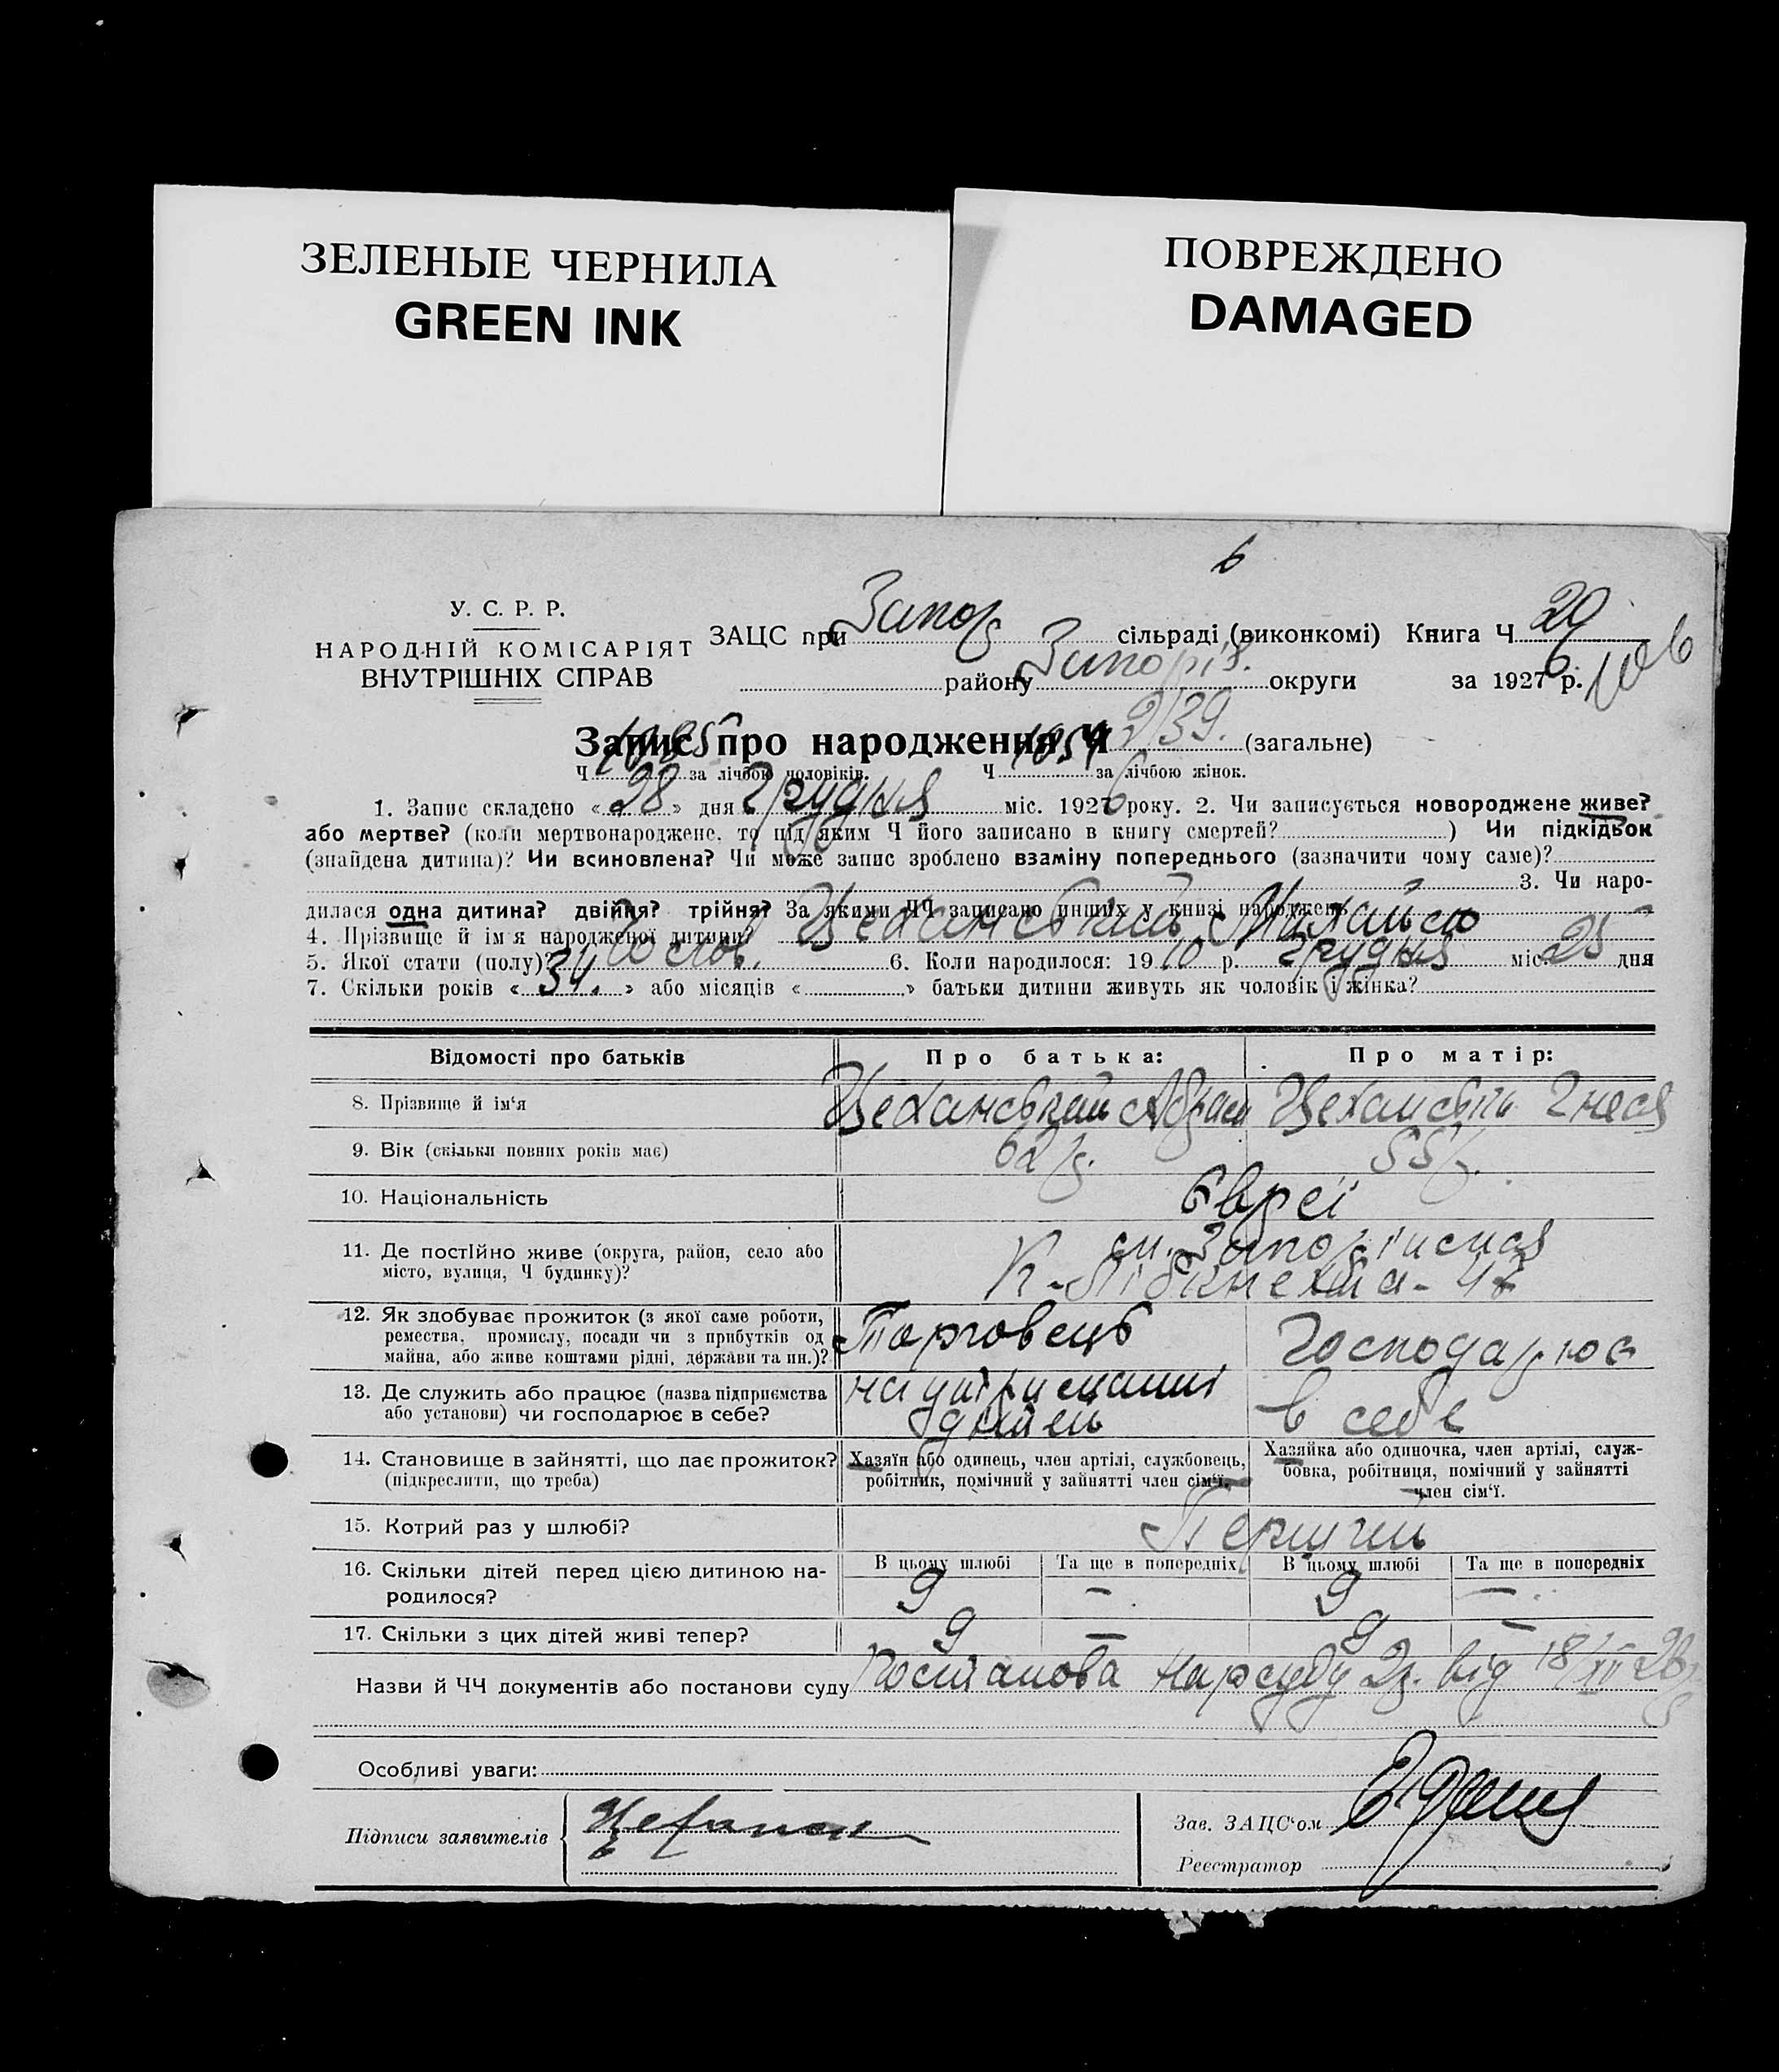 ЗЕЛЕНЫЕ ЧЕРНИЛА
GREEN INK
ПОВРЕЖДЕНО
DAMAGED
6
У. С. Р. Р.
НАРОДНІЙ КОМІСАРІЯТ
ВНУТРІШНІХ СПРАВ
ЗАЦС при Запор сільраді (виконкомі) Книга Ч. 29
району Запоріз. округи за 1926 р.
Запис про народження Ч 2139. (загальне)
Ч 1085 за лічбою чоловіків. Ч 1054 за лічбою жінок.
1. Запис складено «28» дня Грудня міс. 1926 року. 2. Чи записується новороджене живе?
або мертве? (коли мертвонароджене, то під яким Ч його записано в книгу смертей? ) Чи підкідьок
(знайдена дитина)? Чи всиновлена? Чи може запис зроблено взаміну попереднього (зазначити чому саме)?
3. Чи наро-
дилася одна дитина? двійня? трійня? За якими ЧЧ записано инших у книзі народжень
4. Прізвище й імя народженої дитини? Цеханський Михайло
5. Якої стати (полу)? Чолов. 6. Коли народилося: 1910 р. Грудня міс. 25 дня
7. Скільки років «34.» або місяців « » батьки дитини живуть як чоловік і жінка?
Відомості про батьків Про батька: Про матір:
8. Прізвище й ім‘я Цеханський Абрам Цеханськ Гнеся
9. Вік (скільки повних років має) 62 р. 55 р.
10. Національність Євреї
11. Де постійно живе (округа, район, село або ст. Запоріжжя
місто, вулиця, Ч будинку)? К-Лібкнехта-
12. Як здобуває прожиток (з якої саме роботи, Торговець Господарює
ремества, промислу, посади чи з прибутків од
майна, або живе коштами рідні, держави та ин.)?
13. Де служить або працює (назва підприємства на утриманні в себе
або установи) чи господарює в себе? дітей
14. Становище в зайнятті, що дає прожиток? Хазяїн або одинець, член артілі, службовець, Хазяйка або одиночка, член артілі, служ-
(підкреслити, що треба) робітник, помічний у зайнятті член сім‘ї. бовка, робітниця, помічний у зайнятті
член сім‘ї.
15. Котрий раз у шлюбі? Перший
В цьому шлюбі Та ще в попередніх В цьому шлюбі Та ще в попередніх
16. Скільки дітей перед цією дитиною на- 9 — 9 —
родилося?
17. Скільки з цих дітей живі тепер? 9 — 9 —
Назви й ЧЧ документів або постанови суду Постанова Нарсуду 2 р. від 18/XII 26 р
Особливі уваги:
Підписи заявителів
Зав. ЗАЦС‘ом
Реєстратор